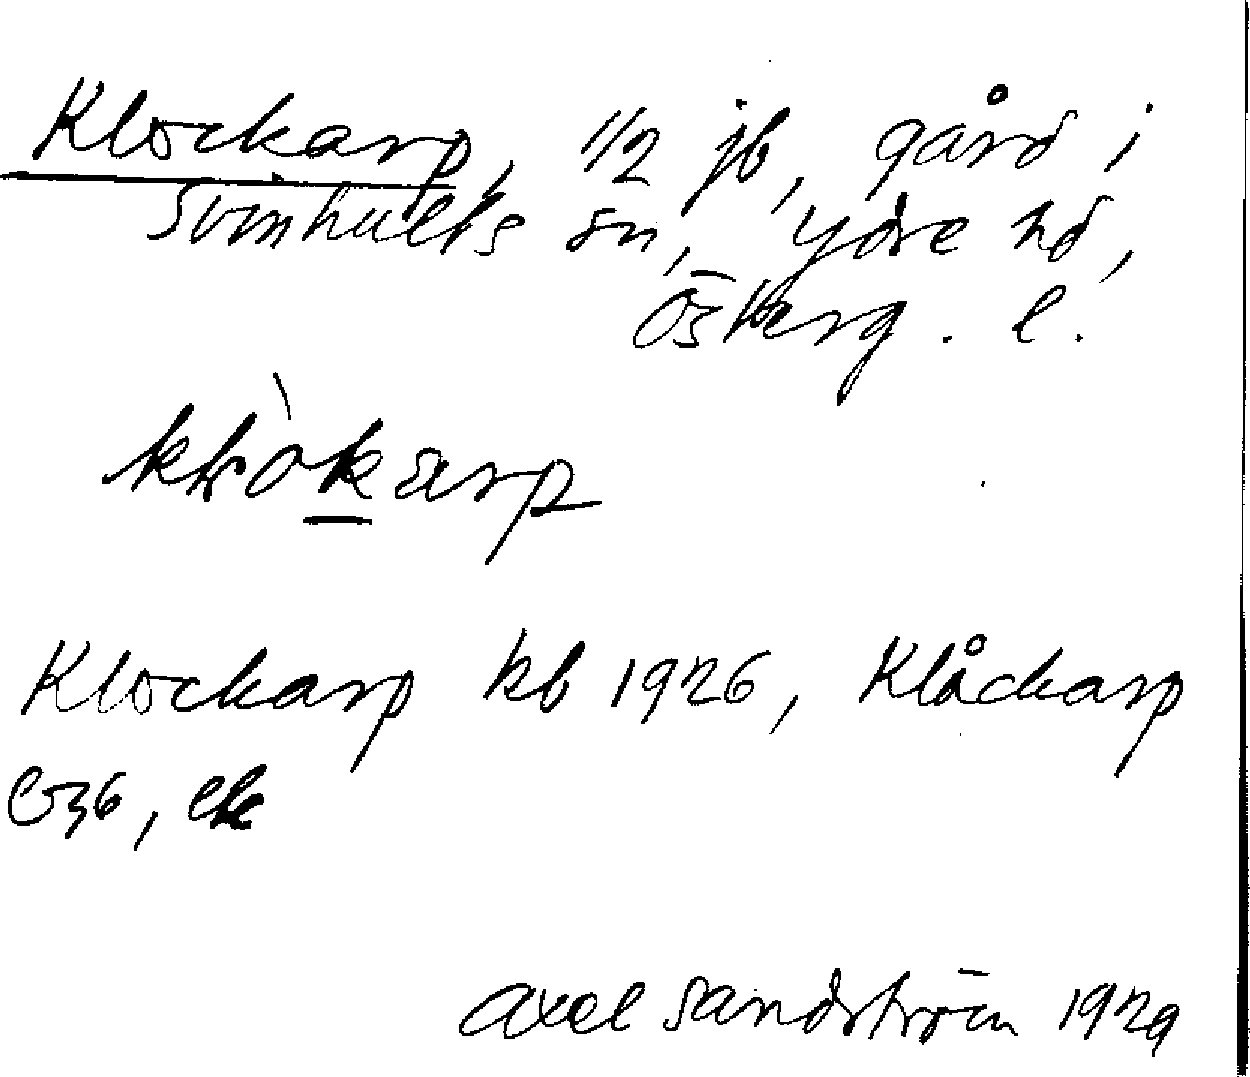 Klockarp, 1/2 jb, gård i
Svinhults sn, Ydre hd,
Österg. l.
klòkarp
Klockarp kb 1926, Klåckarp
G36, ek
Axel Sandström 1929